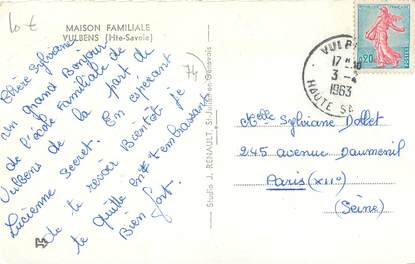 10 €
MAISON FAMILIALE
VULBENS (Hte-Savoie)
74)
Chère Sylviane
un Grand Bonjour
de l'école Familiale de
Vulbens de la part de
Lucienne Secret. En espérant
de te revoir Bientôt je
te quitte en t'embrassant
Bien fort.
Studio J. RENAULT, St-Julien-en-Genevois
VULB
17
3 -
1963
HAUTE S
0,20
POSTES
Melle Sylviane Dollet
245 avenue Daumenil
Paris (XII°)
(Seine)